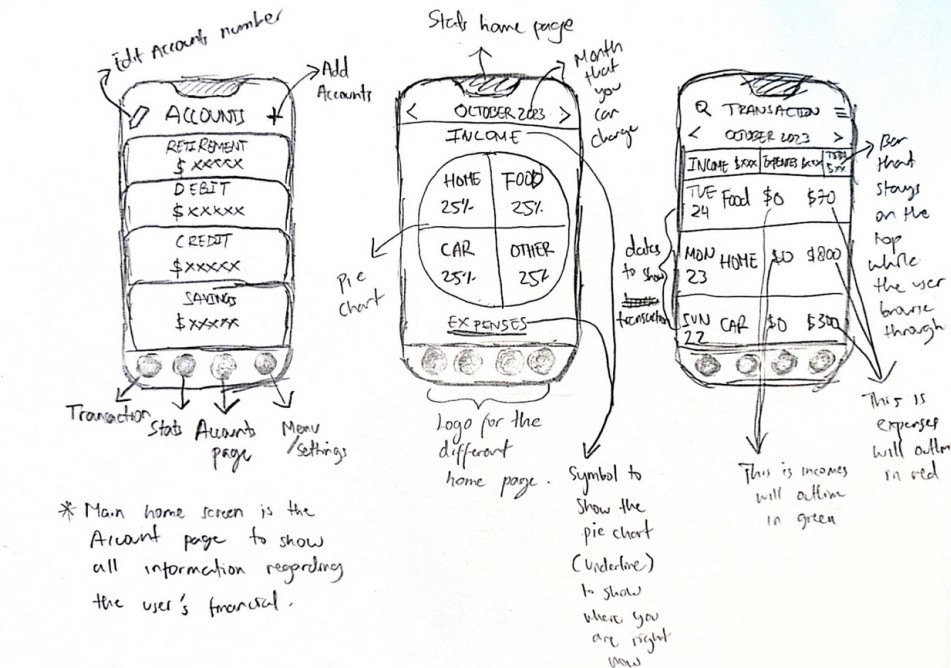 Edit Accounts number
Add
Accounts
ACCOUNTS +
RETIREMENT
$ xxxxx
DEBIT
$ xxxxx
CREDIT
$ xxxxx
SAVINGS
$ xxxxx
Transaction
Stats
Accounts
page
Menu
/Settings
* Main home screen is the
Account page to show
all information regarding
the user's financial.
Stats home page
Month
that
you
can
change
< OCTOBER 2023 >
INCOME
HOME
25%
FOOD
25%
CAR
25%
OTHER
25%
EXPENSES
Pie
chart
Logo for the
different
home page.
Symbol to
show the
pie chart
(underline)
to show
where you
are right
now
TRANSACTION
< OCTOBER 2023 >
INCOME $xxx EXPENSES $xxx
TUE
24 Food $0 $70
MON
23 HOME $0 $800
SUN
22 CAR $0 $300
dates
to show
transaction
Bar
that
stays
on the
top
while
the user
browse
through
This is
expenses
will outline
in red
This is incomes
will outline
in green